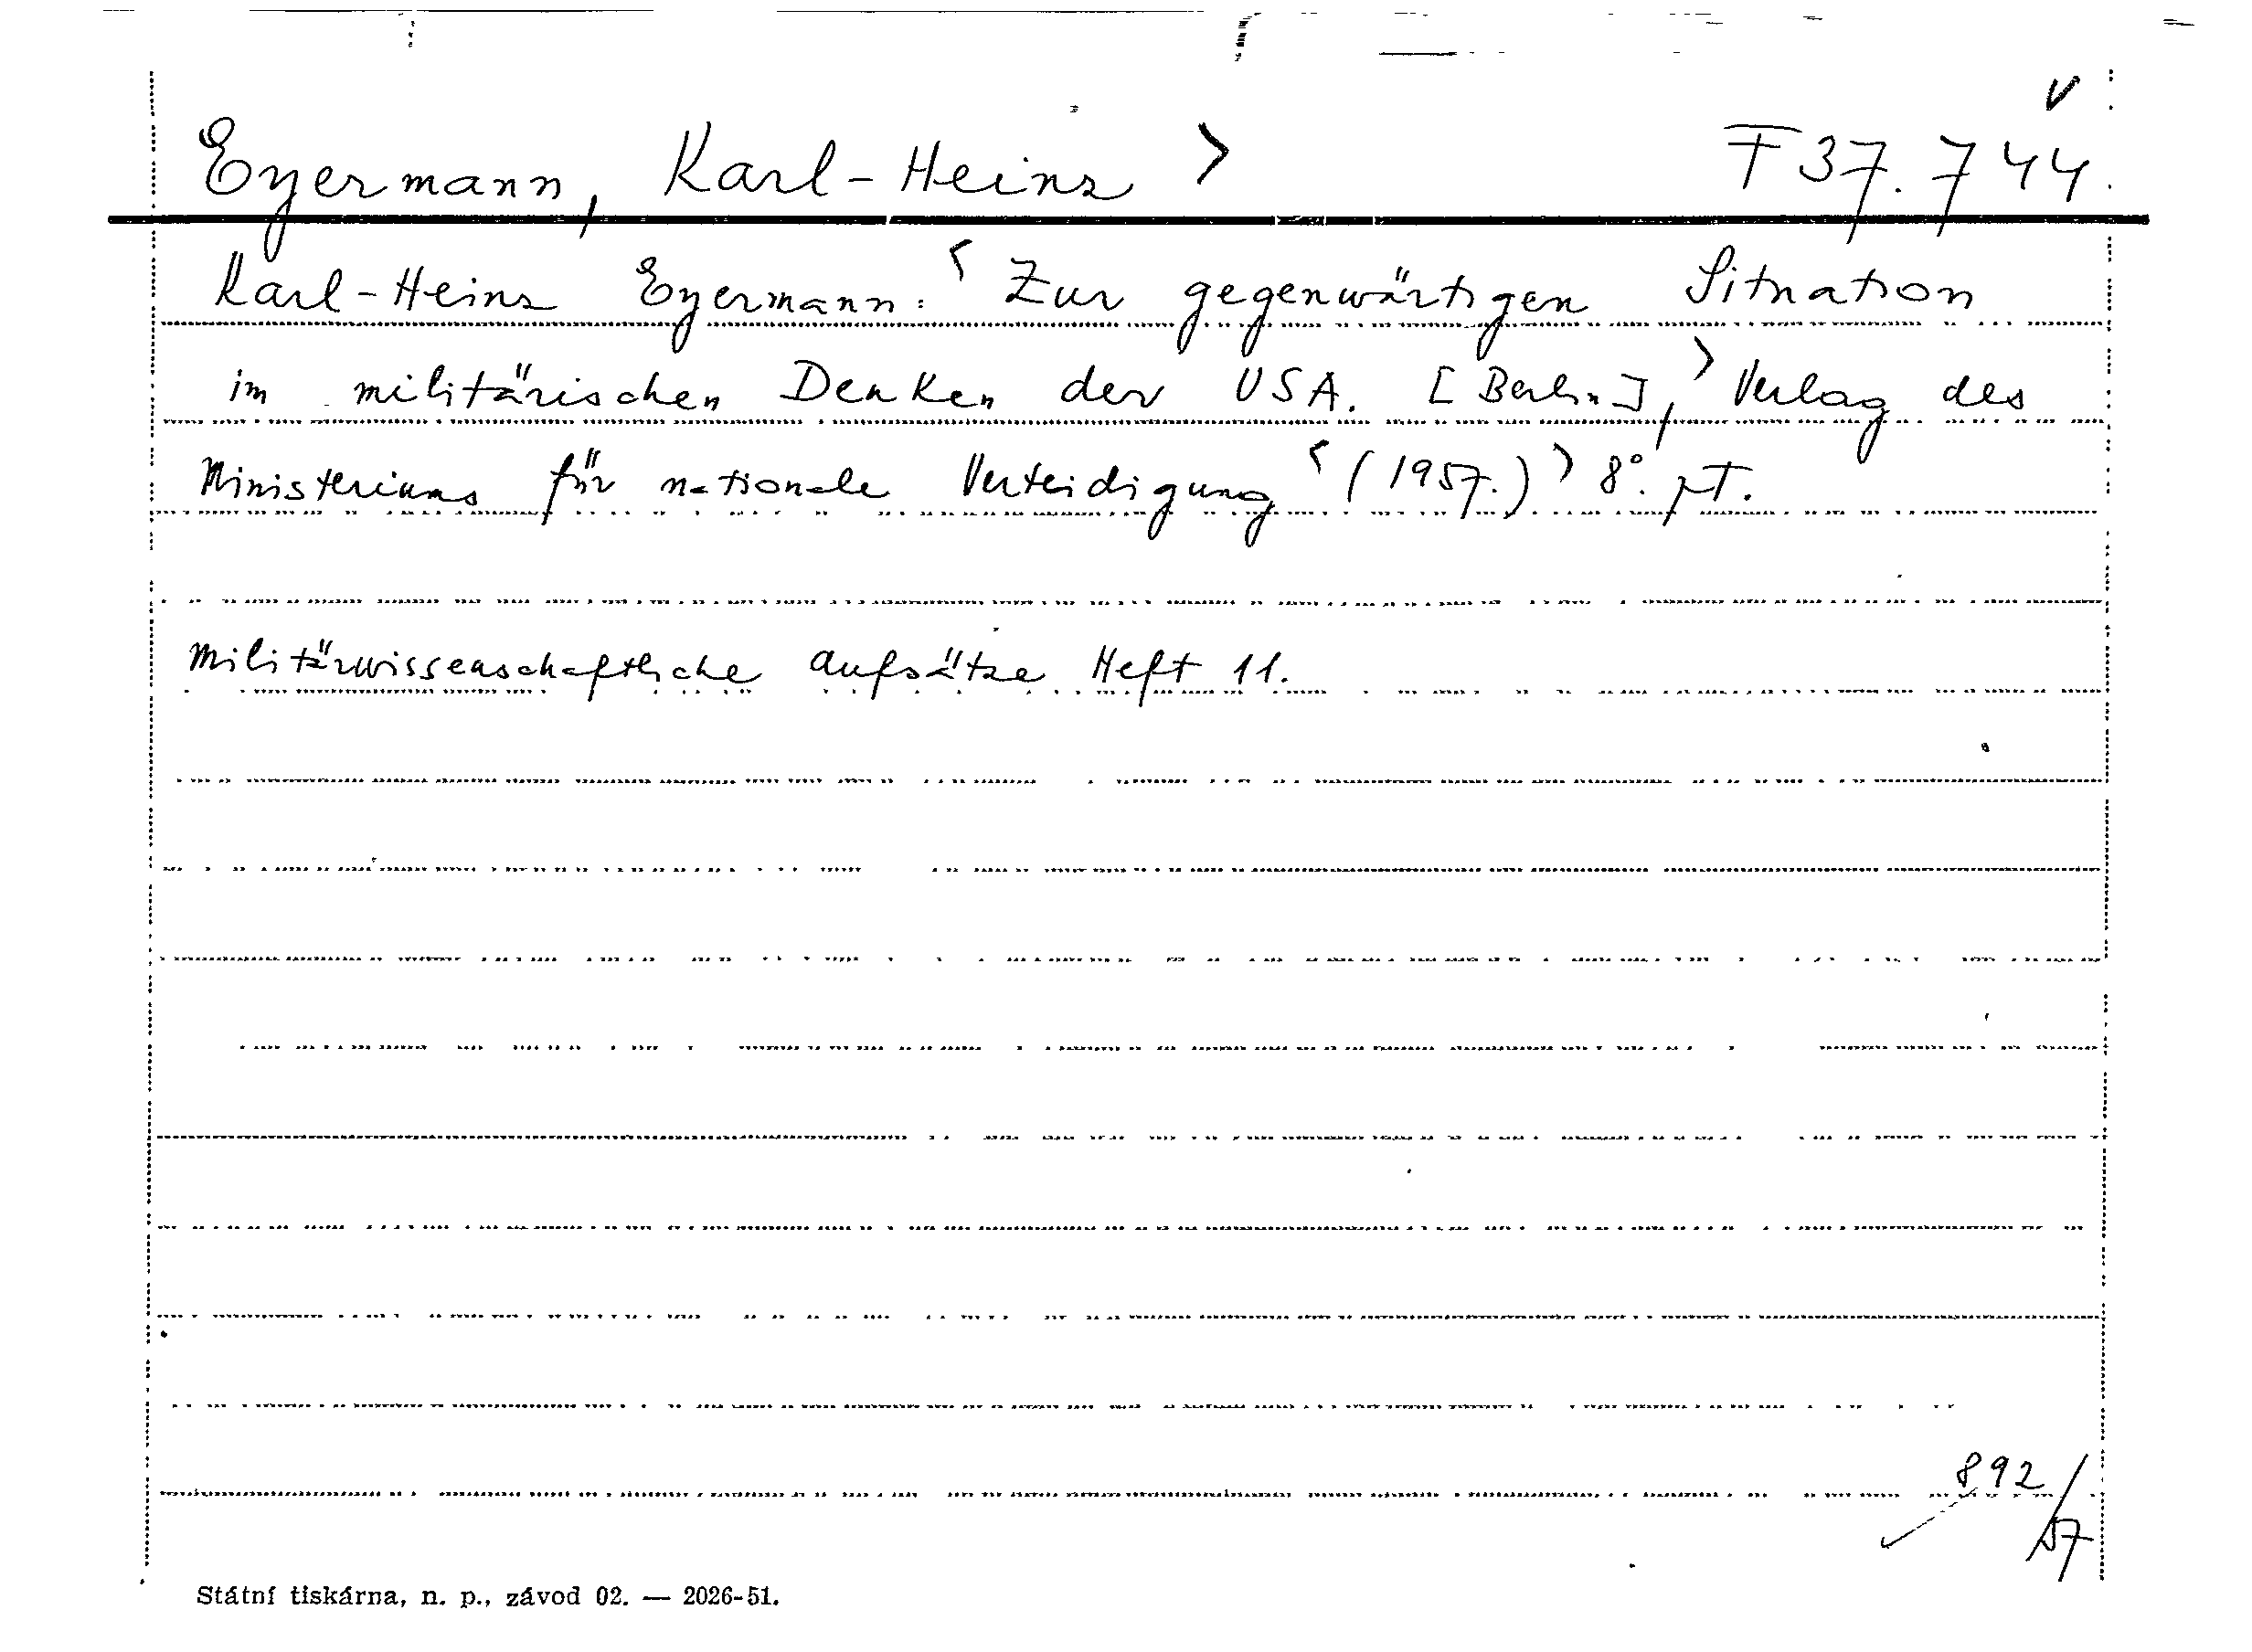 v
Eyermann, Karl-Heinz > F 37.744.
Karl-Heinz Eyermann: < Zur gegenwärtigen Situation
im militärischen Denken der USA. [Berlin], > Verlag des
Ministeriums für nationale Verteidigung < (1957.) > 8°. pT.
Militärwissenschaftliche Aufsätze Heft 11.
892/57
Státní tiskárna, n. p., závod 02. — 2026-51.